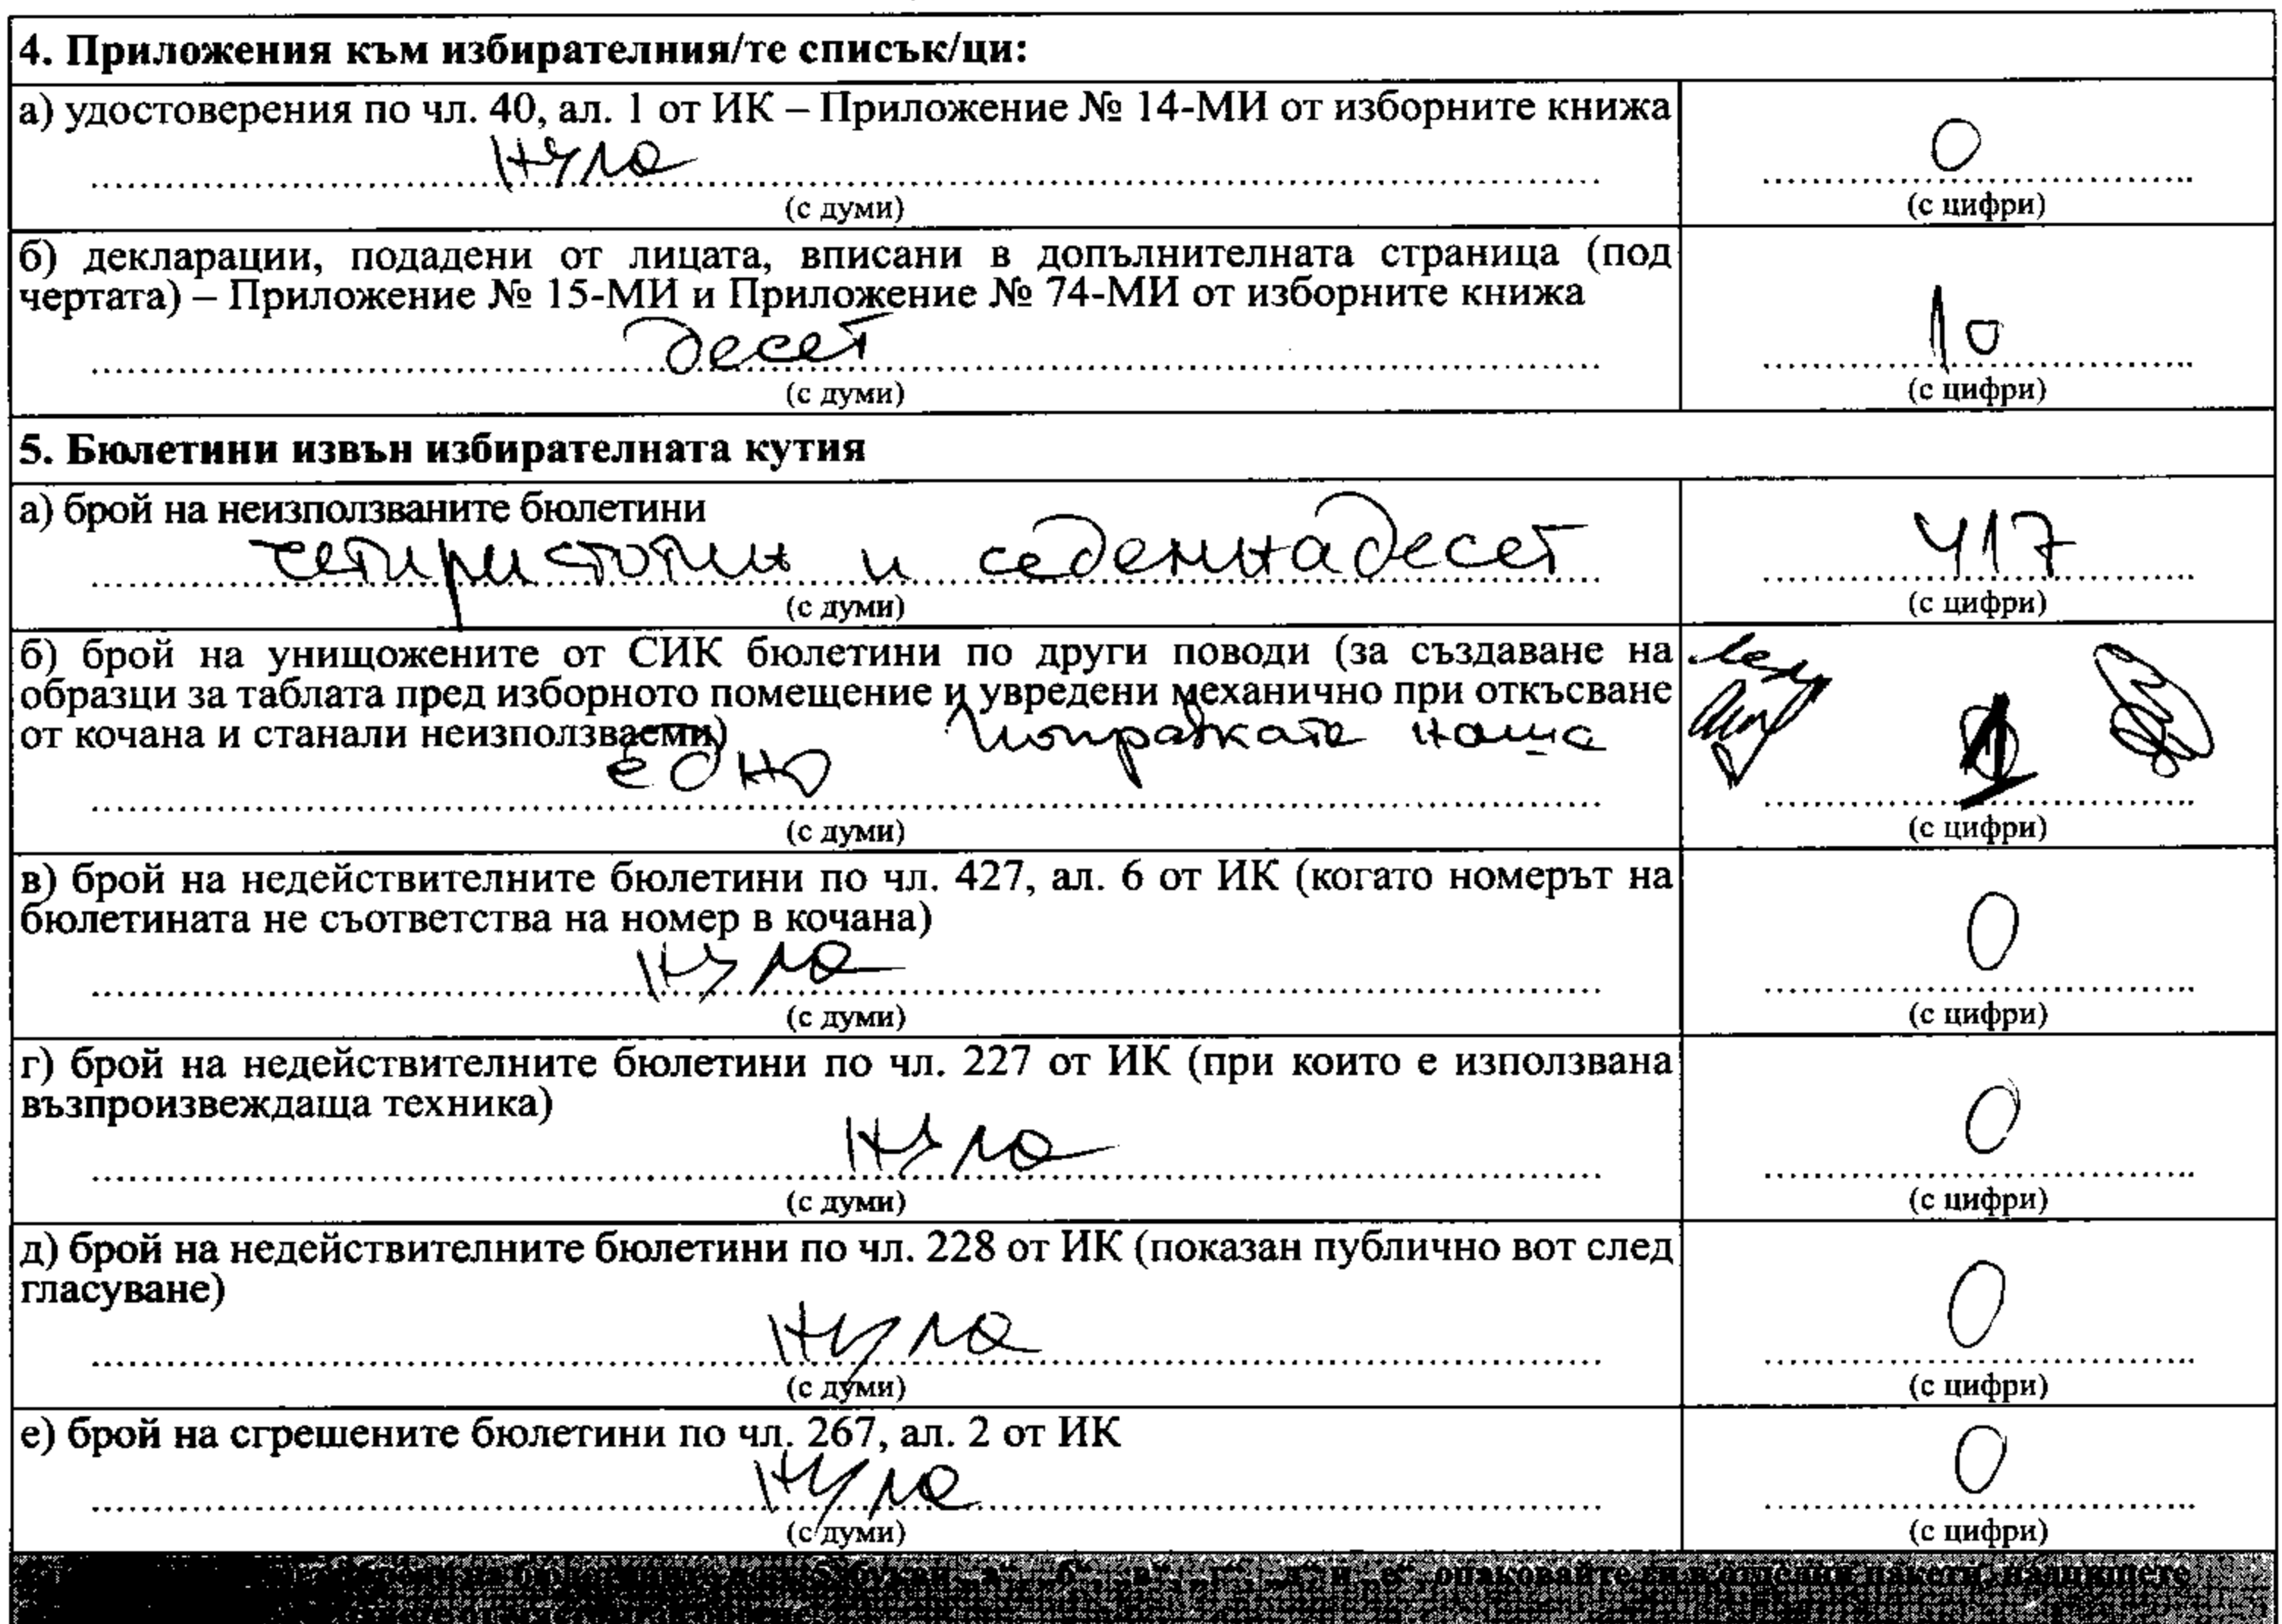 4. Приложения към избирателния/те списък/ци:
а) удостоверения по чл. 40, ал. 1 от ИК – Приложение № 14-МИ от изборните книжа
нула
0
(с думи)
(с цифри)
б) декларации, подадени от лицата, вписани в допълнителната страница (под
чертата) – Приложение № 15-МИ и Приложение № 74-МИ от изборните книжа
десет
10
(с думи)
(с цифри)
5. Бюлетини извън избирателната кутия
а) брой на неизползваните бюлетини
четиристотин и седемнадесет
417
(с думи)
(с цифри)
б) брой на унищожените от СИК бюлетини по други поводи (за създаване на
образци за таблата пред изборното помещение и увредени механично при откъсване
от кочана и станали неизползваеми)
Поправката наша
едно
1
(с думи)
(с цифри)
в) брой на недействителните бюлетини по чл. 427, ал. 6 от ИК (когато номерът на
бюлетината не съответства на номер в кочана)
нула
0
(с думи)
(с цифри)
г) брой на недействителните бюлетини по чл. 227 от ИК (при които е използвана
възпроизвеждаща техника)
нула
0
(с думи)
(с цифри)
д) брой на недействителните бюлетини по чл. 228 от ИК (показан публично вот след
гласуване)
нула
0
(с думи)
(с цифри)
е) брой на сгрешените бюлетини по чл. 267, ал. 2 от ИК
нула
0
(с думи)
(с цифри)
опаковайте ги в отделни пакети, надпишете